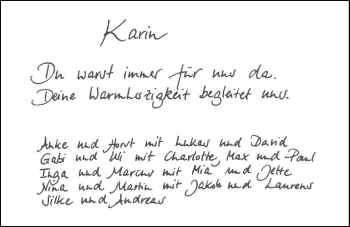 Karin
Du warst immer für uns da.
Deine Warmherzigkeit begleitet uns.
Anke und Horst mit Lukas und David
Gabi und Wi mit Charlotte, Max und Paul
Inga und Marcus mit Mia und Jette
Nina und Martin mit Jakob und Laurens
Silke und Andreas